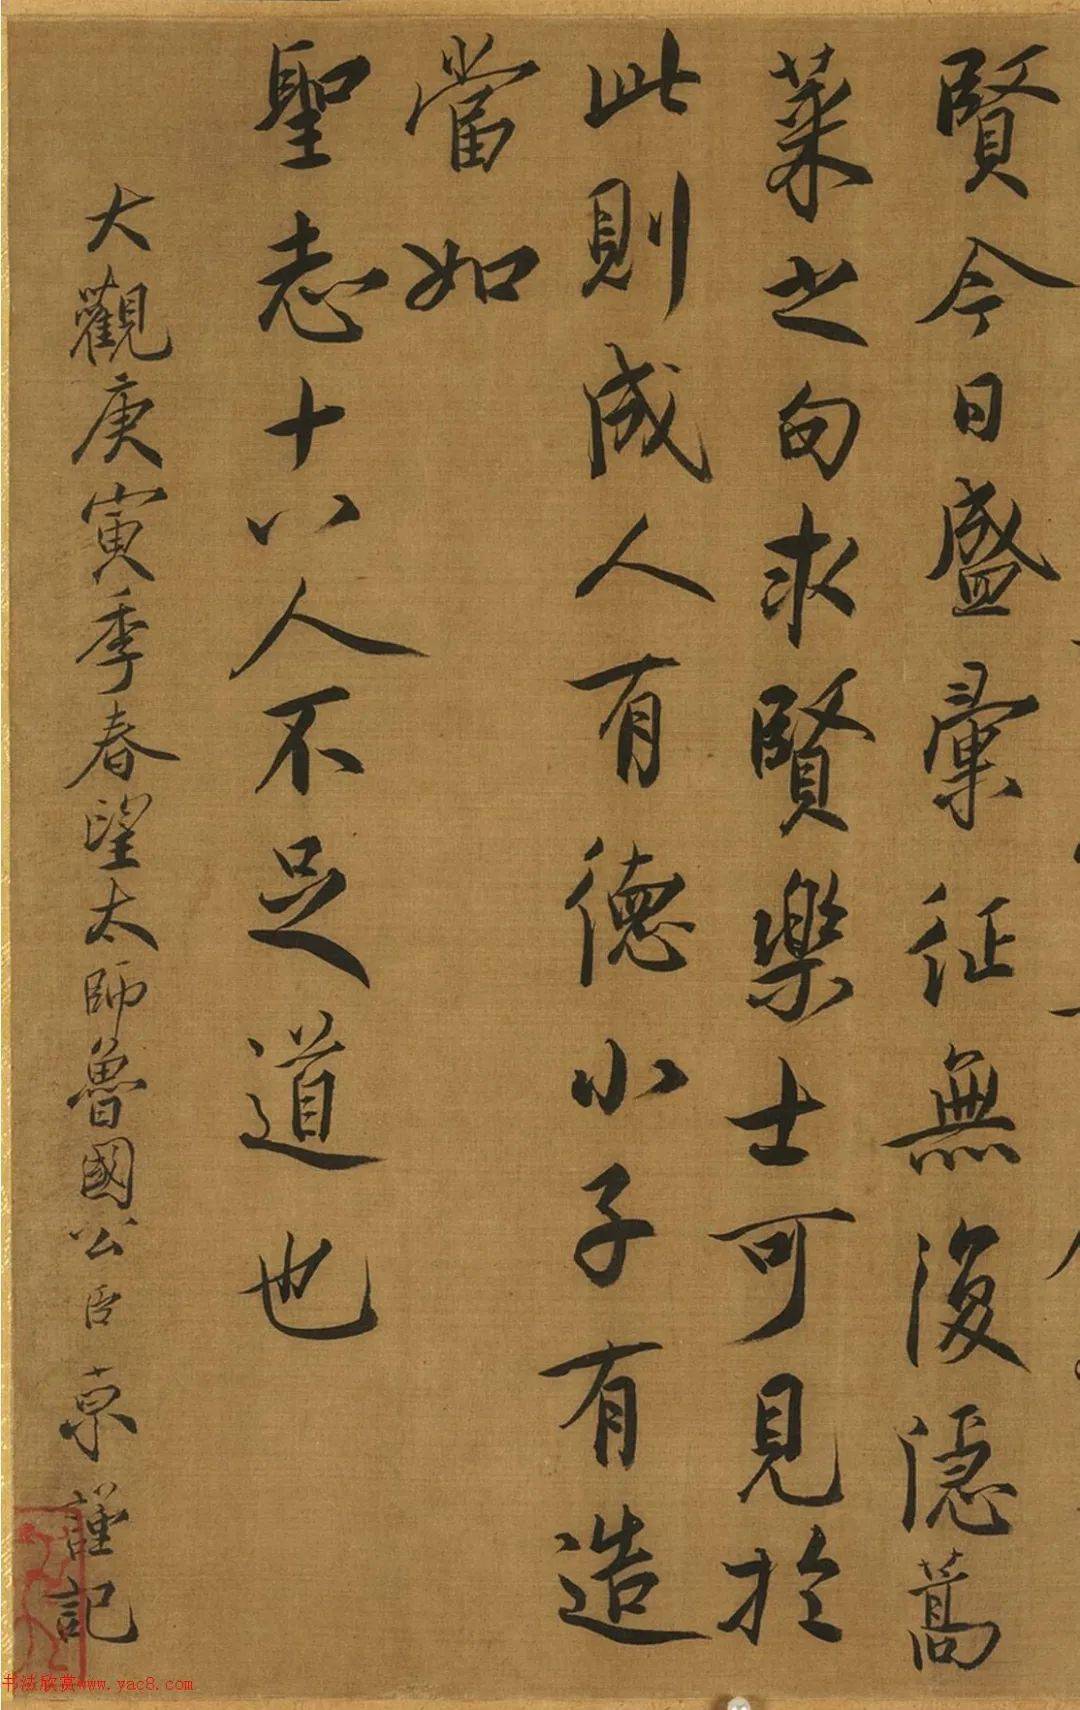 賢今日盛彙征無復隱蒿
萊之句求賢樂士可見於
此則成人有德小子有造
當如
聖志十八人不足道也
大觀庚寅季春望太師魯國公臣京謹記
书法欣赏www.yac8.com